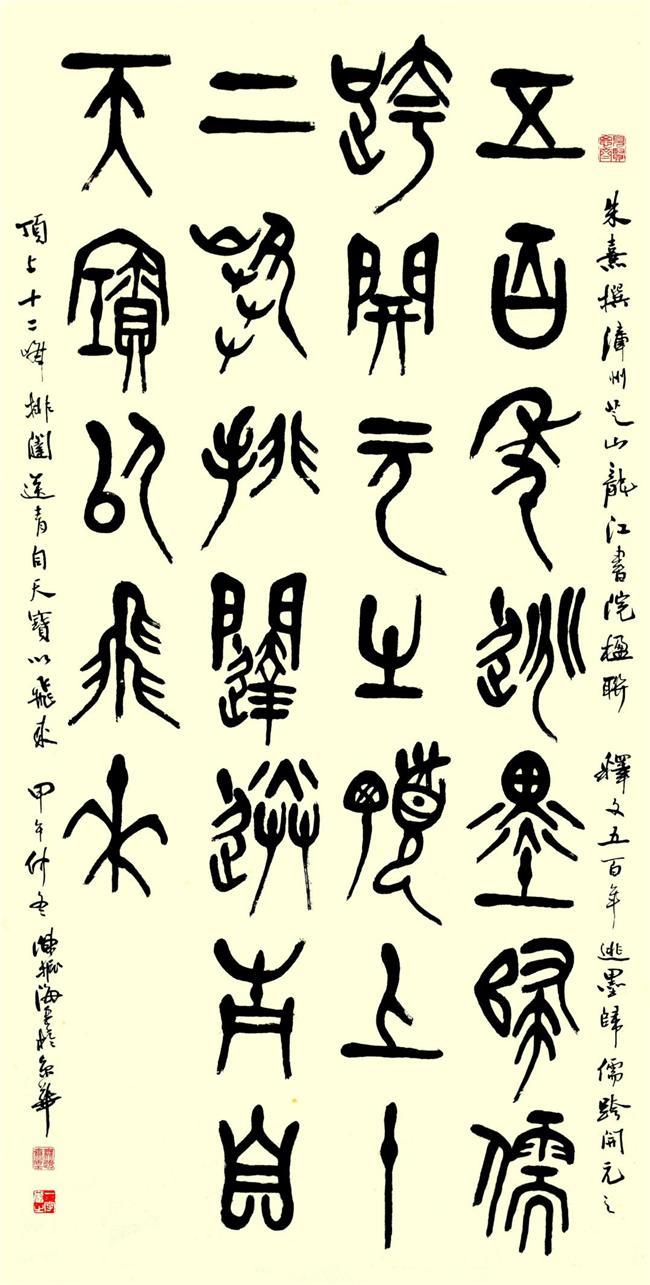 朱熹撰漳州芝山龍江書院楹聯 釋文五百年逃墨歸儒跨開元之
五百年逃墨歸儒
跨開元之頂上十
二峰排闥送青自
天寶以飛來
頂上十二峰排闥送青自天寶以飛來 甲午仲冬 陳振海書於京華